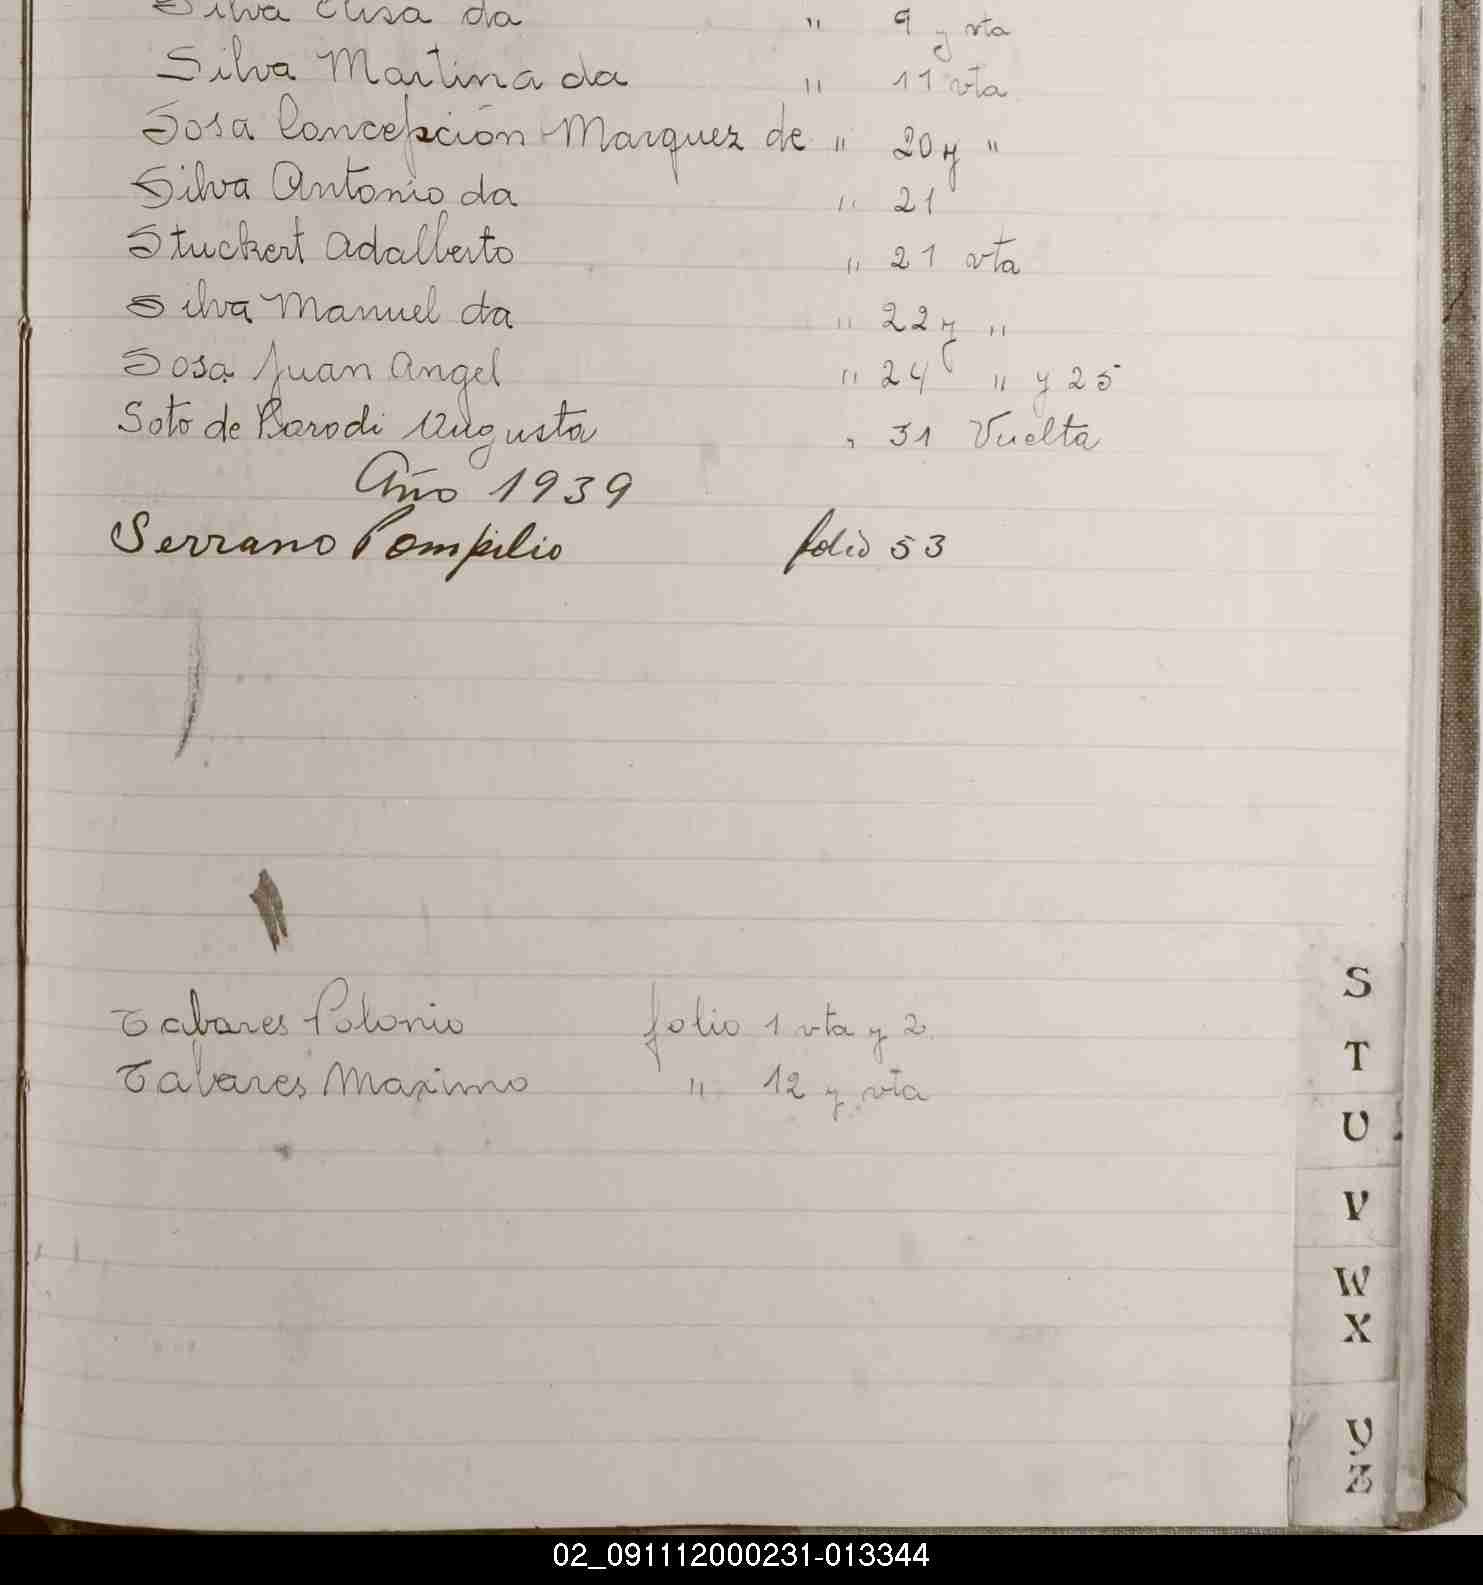 Silva Elisa da " 9 y vta
Silva Martina da " 11 vta
Sosa Concepción Marquez de " 20 y "
Silva Antonio da " 21
Stuckert Adalberto " 21 vta
Silva Manuel da " 22 y "
Sosa Juan Angel " 24 " y 25
Soto de Parodi Augusta " 31 Vuelta
Año 1939
Serrano Pompilio folio 53
Tabares Polonio folio 1 vta y 2
Tabares Maximo " 12 y vta
S
T
U
V
W
X
Y
Z
02_091112000231-013344